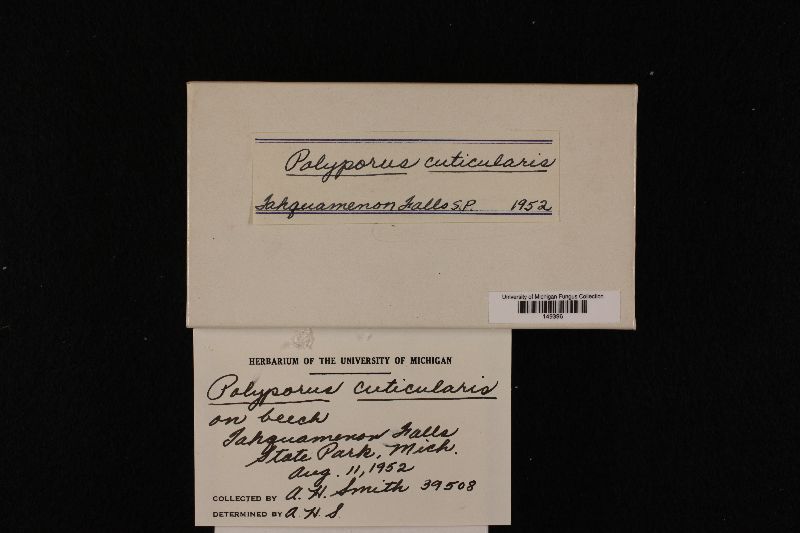 Polyporus cuticularis
Tahquamenon Falls S.P. 1952
University of Michigan Fungus Collection
149396
HERBARIUM OF THE UNIVERSITY OF MICHIGAN
Polyporus cuticularis
on beech
Tahquamenon Falls
State Park, Mich.
Aug. 11, 1952
COLLECTED BY A. H. Smith 39508
DETERMINED BY A. H. S.